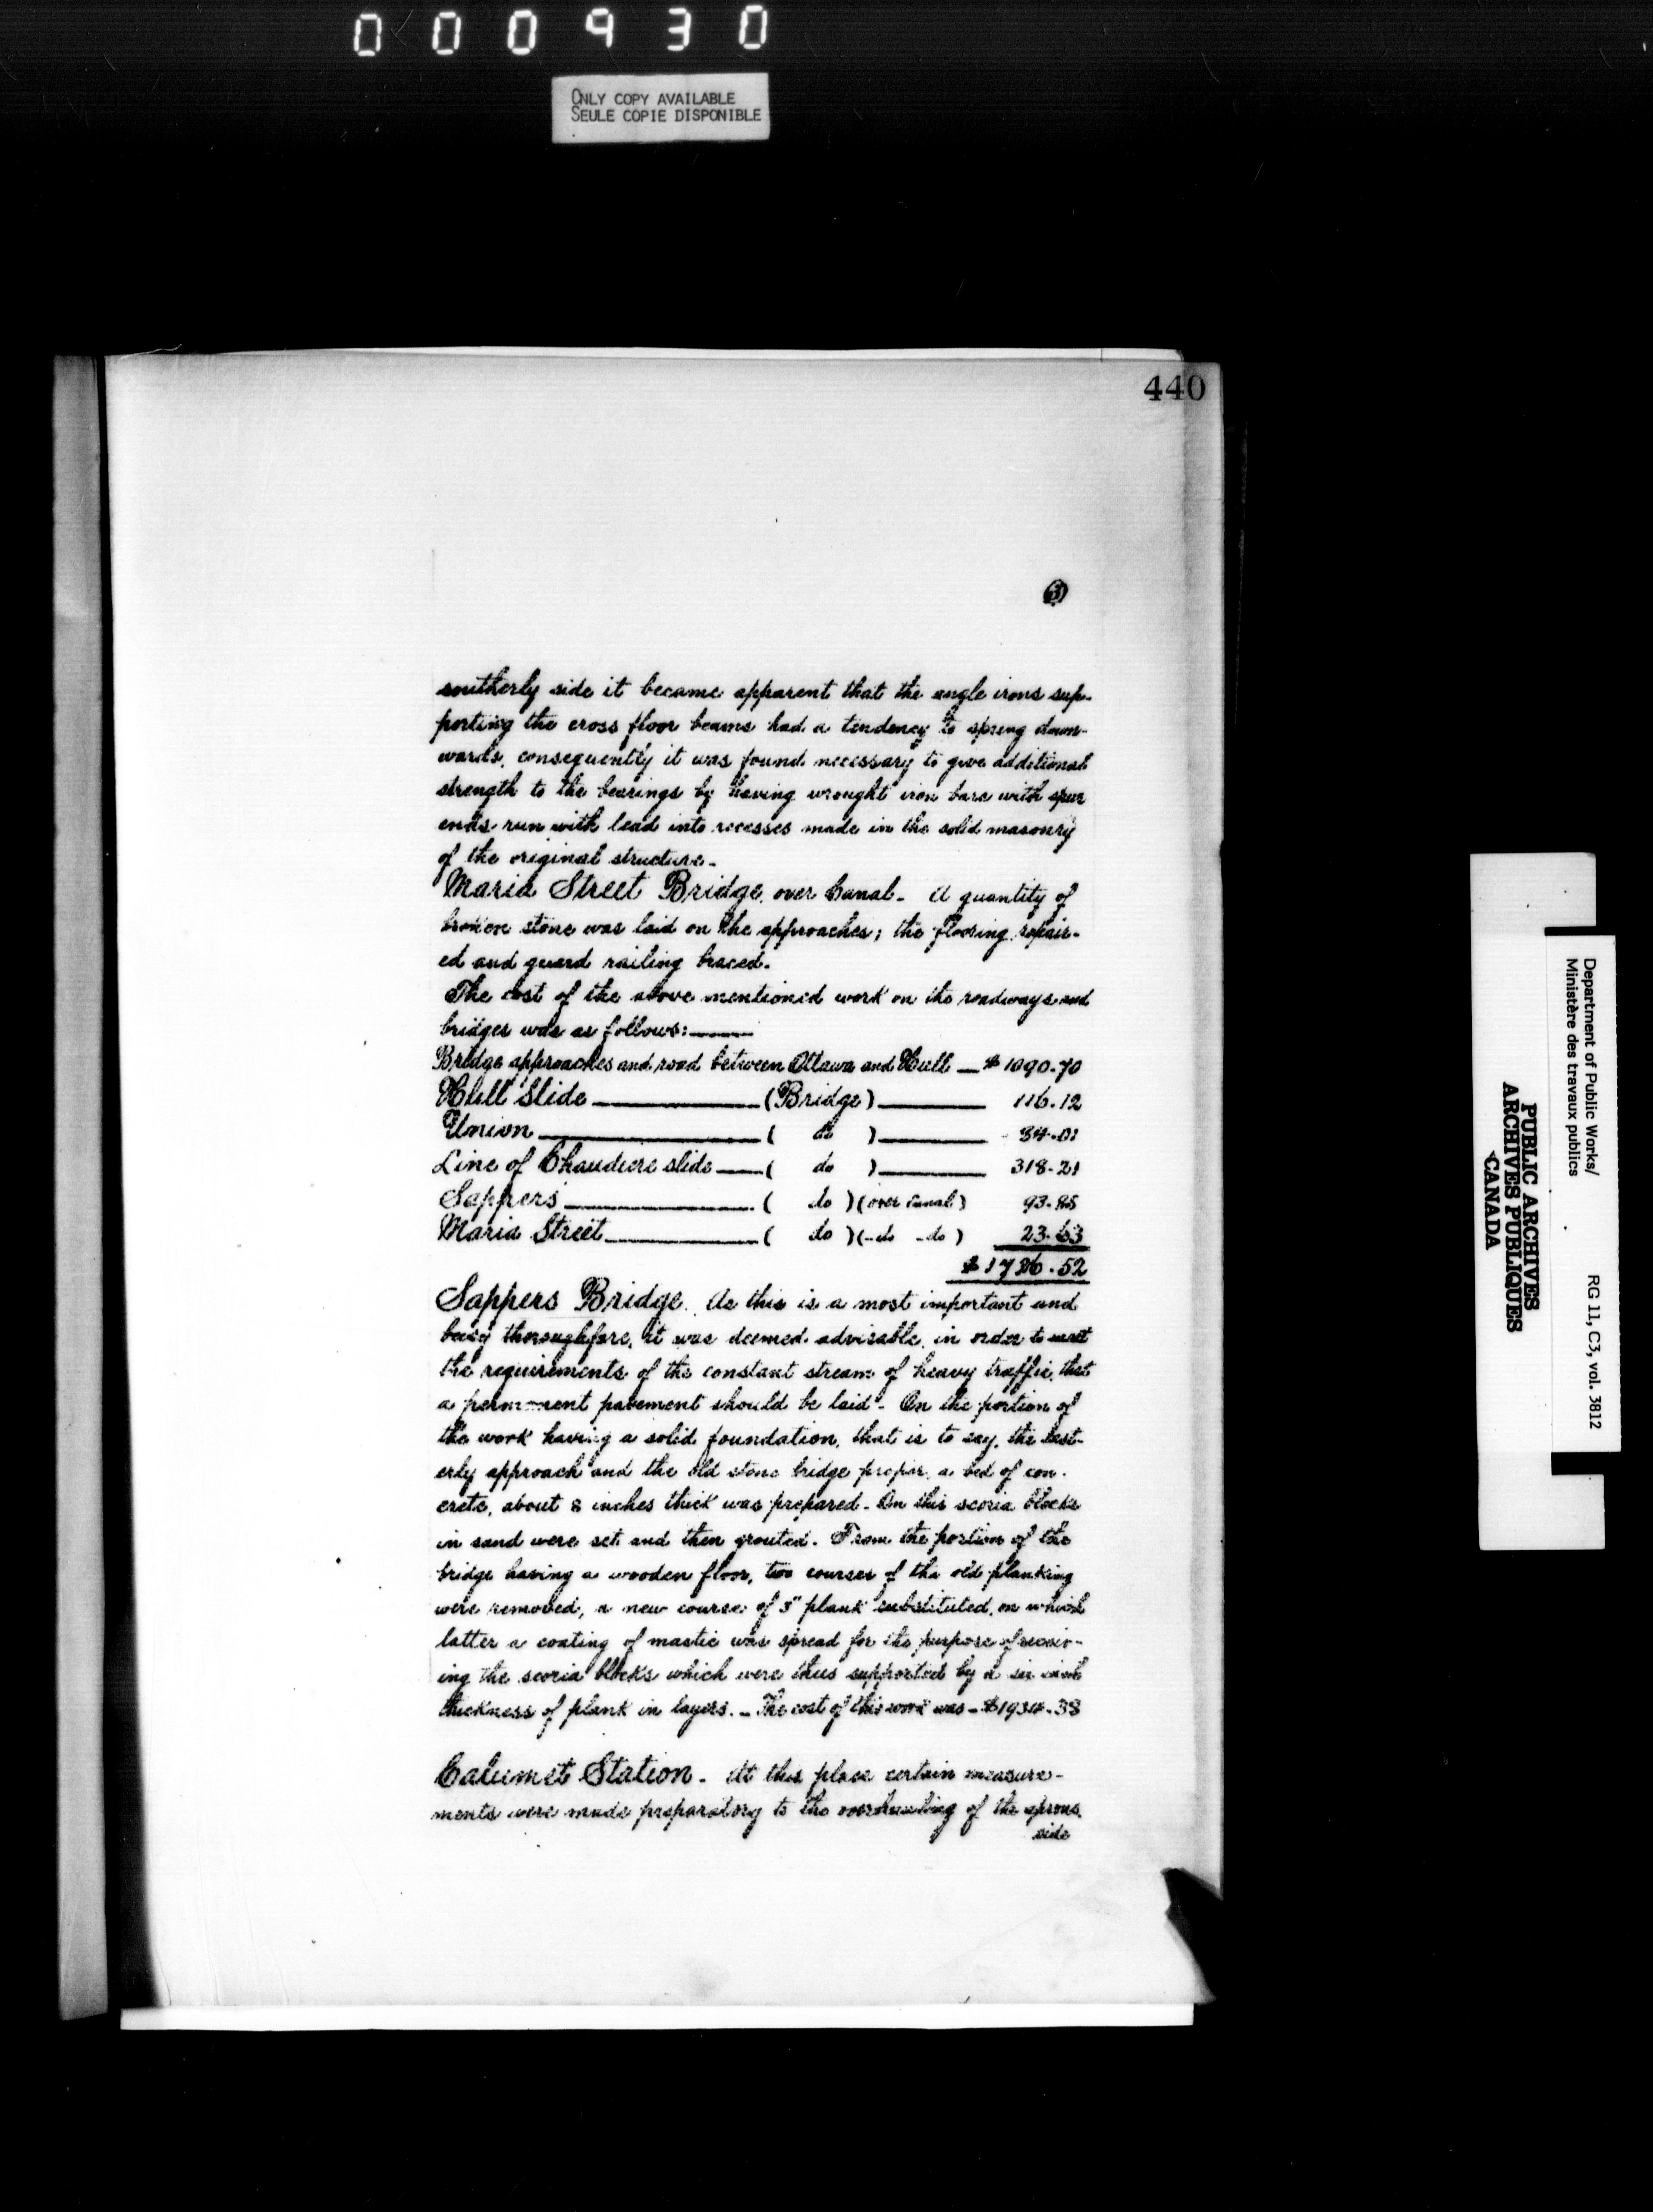 000930
ONLY COPY AVAILABLE
SEULE COPIE DISPONIBLE
440
3
southerly side it became apparent that the angle irons sup-
porting the cross floor beams had a tendency to spring down-
wards, consequently it was found necessary to give additional
strength to the bearings by having wrought iron bars with spur
ends run with lead into recesses made in the solid masonry
of the original structure-
Maria Street Bridge over Canal- A quantity of
broken stone was laid on the approaches; the flooring repair-
ed and guard railing braced.
The cost of the above mentioned work on the roadways and
bridges was as follows:——
Bridge approaches and road between Ottawa and Hull — $1090.70
Hull Slide ——— (Bridge) ——— 116.12
Union ——— ( do ) ——— 84.01
Line of Chaudiere slide —— ( do ) ——— 318.21
Sappers ——— ( do ) (over Canal) 93.85
Maria Street ——— ( do ) (-do -do) 23.63
$1726.52
Sappers Bridge. As this is a most important and
busy thoroughfare, it was deemed advisable, in order to meet
the requirements of the constant stream of heavy traffic, that
a permanent pavement should be laid- On the portion of
the work having a solid foundation, that is to say, the east-
erly approach and the old stone bridge proper, a bed of con-
crete, about 8 inches thick was prepared- On this scoria blocks
in sand were set and then grouted. From the portion of the
bridge having a wooden floor, two courses of the old planking
were removed, a new course of 3" plank substituted, on which
latter a coating of mastic was spread for the purpose of receiv-
ing the scoria blocks which were thus supported by a six inch
thickness of plank in layers. - The cost of this work was - $1934.38
Calumet Station - At this place certain measure-
ments were made preparatory to the overhauling of the aprons
side
Department of Public Works/
Ministère des travaux publics
RG 11, C3, vol. 3812
PUBLIC ARCHIVES
ARCHIVES PUBLIQUES
CANADA